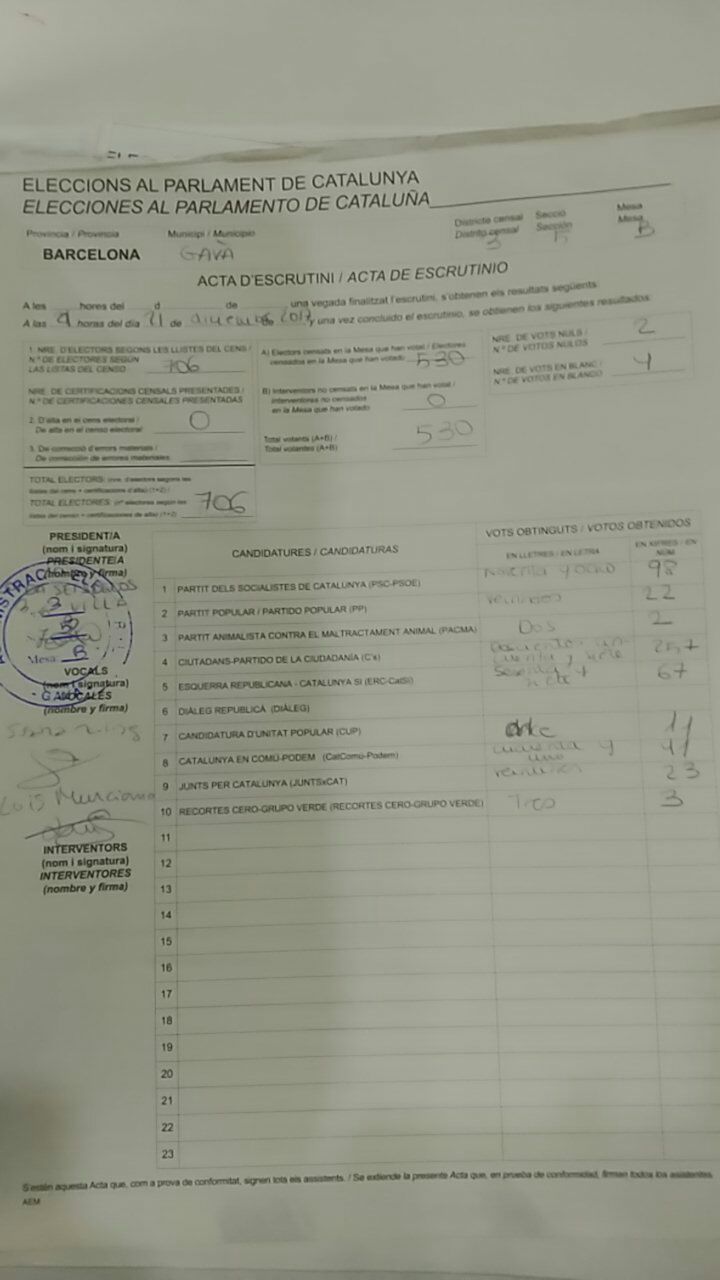 ELECCIONS AL PARLAMENT DE CATALUNYA
ELECCIONES AL PARLAMENTO DE CATALUÑA
Província / Provincia
Municipi / Municipio
Districte censal Secció Mesa
Distrito censal Sección Mesa
BARCELONA GAVÀ 3 B
ACTA D'ESCRUTINI / ACTA DE ESCRUTINIO
A les hores del d de , una vegada finalitzat l'escrutini, s'obtenen els resultats següents
A las 9 horas del día 21 de diciembre de 2017 y una vez concluido el escrutinio, se obtienen los siguientes resultados:
1. NRE. D'ELECTORS SEGONS LES LLISTES DEL CENS /
N.º DE ELECTORES SEGÚN
LAS LISTAS DEL CENSO 706
NRE. DE CERTIFICACIONS CENSALS PRESENTADES /
N.º DE CERTIFICACIONES CENSALES PRESENTADAS
2. D'alta en el cens electoral /
De alta en el censo electoral 0
3. De correcció d'errors materials /
De corrección de errores materiales
TOTAL ELECTORS: (nre. d'electors segons les
llistes del cens + certificacions d'alta) (1+2) /
TOTAL ELECTORES: (nº electores según las
listas del censo + certificaciones de alta) (1+2) 706
A) Electors censats en la Mesa que han votat / Electores
censados en la Mesa que han votado 530
B) Interventors no censats en la Mesa que han votat /
Interventores no censados
en la Mesa que han votado 0
Total votants (A+B) /
Total votantes (A+B) 530
NRE. DE VOTS NULS /
N.º DE VOTOS NULOS 2
NRE. DE VOTS EN BLANC /
N.º DE VOTOS EN BLANCO 4
PRESIDENT/A
(nom i signatura)
PRESIDENTE/A
(nombre y firma)
3
Mesa B
VOCALS
(nom i signatura)
VOCALES
(nombre y firma)
Luis Murciano
INTERVENTORS
(nom i signatura)
INTERVENTORES
(nombre y firma)
CANDIDATURES / CANDIDATURAS
VOTS OBTINGUTS / VOTOS OBTENIDOS
EN LLETRES / EN LETRA
EN XIFRES / EN NÚM
1 PARTIT DELS SOCIALISTES DE CATALUNYA (PSC-PSOE) noventa y ocho 98
2 PARTIT POPULAR / PARTIDO POPULAR (PP) veintidos 22
3 PARTIT ANIMALISTA CONTRA EL MALTRACTAMENT ANIMAL (PACMA) Dos 2
4 CIUTADANS-PARTIDO DE LA CIUDADANÍA (C's) doscientos cincuenta y siete 257
5 ESQUERRA REPUBLICANA - CATALUNYA SÍ (ERC-CatSí) sesenta y siete 67
6 DIÀLEG REPUBLICÀ (DIÀLEG)
7 CANDIDATURA D'UNITAT POPULAR (CUP) once 11
8 CATALUNYA EN COMÚ-PODEM (CatComú-Podem) cuarenta y uno 41
9 JUNTS PER CATALUNYA (JUNTSxCAT) veintitres 23
10 RECORTES CERO-GRUPO VERDE (RECORTES CERO-GRUPO VERDE) Tres 3
11
12
13
14
15
16
17
18
19
20
21
22
23
S'estén aquesta Acta que, com a prova de conformitat, signen tots els assistents. / Se extiende la presente Acta que, en prueba de conformidad, firman todos los asistentes.
AEM